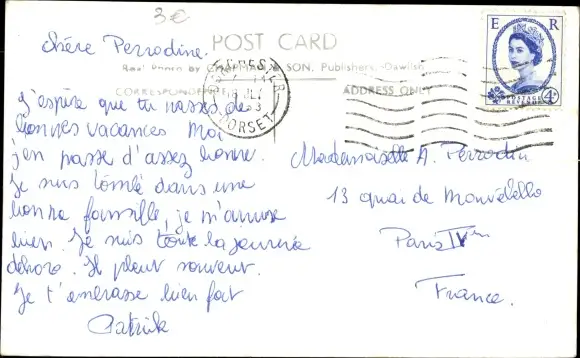 3€
POST CARD
Real Photo by CHAPMAN & SON, Publishers, Dawlish
CORRESPONDENCE
ADDRESS ONLY
E R
POSTAGE
REVENUE
4D
DORSET
chère Perrodine.
J'espère que tu passes de
bonnes vacances Moi
j'en passe d'assez bonne.
Je suis tombé dans une
bonne famille, je m'amuse
bien. Je suis toute la journée
dehors. Il pleut souvent.
Je t'embrasse bien fort
Patrick
Mademoiselle A. Perrodin
13 quai de Montebello
Paris
France.